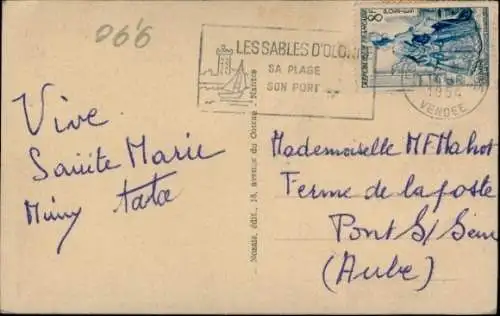 066
LES SABLES D'OLON
SA PLAGE
SON PORT
8F
REPUBLIQUE FRANÇAISE
1954
VENDEE
Vive
Sainte Marie
Mimy tata
Nozais, édit., 18, avenue du Océan - Nantes
Mademoiselle MF Mahot
Ferme de la poste
Pont S/ Seine
(Aube)